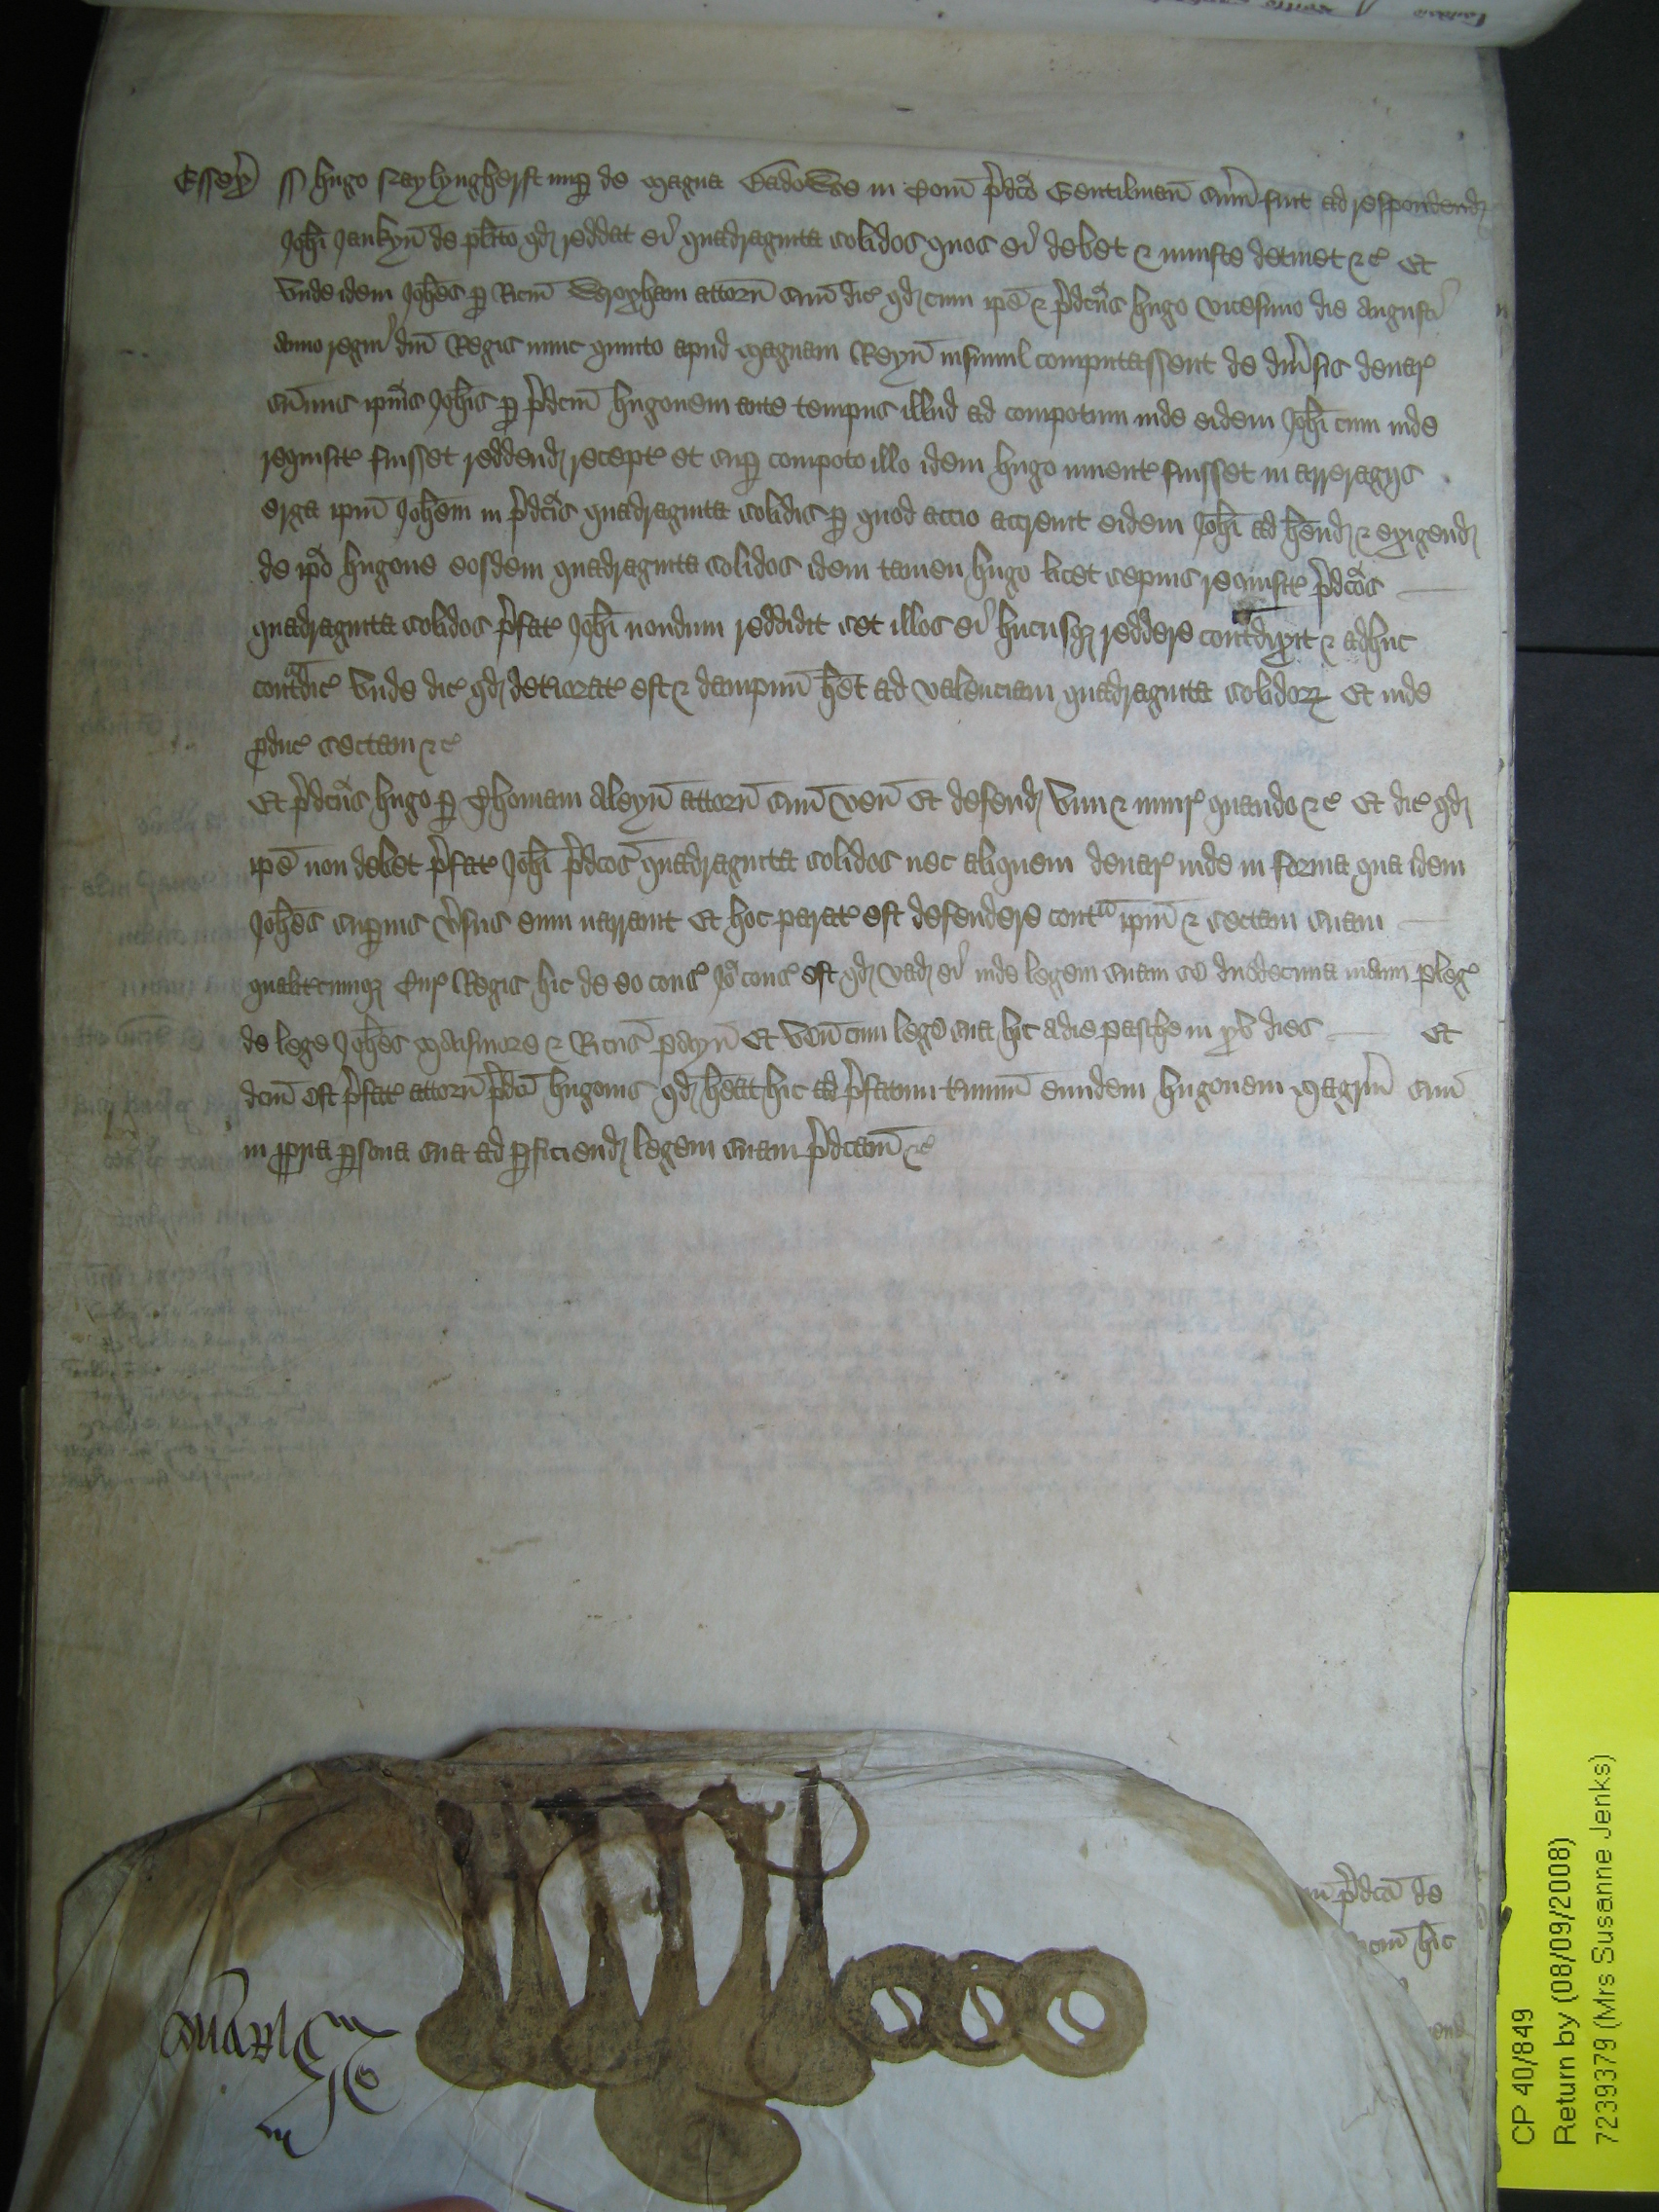 Essex ss hugo Naylyngherst nup de magna Badowe in Com p̄dc̄o Gentilman sum̄ fuit ad respondend
Joh̄i Jankyn de pl̄ito qd reddat ei quadraginta solidos quos ei debet & iniuste detinet &c Et
vnde idem Joh̄es p Ricm̄ Wroxham attorn̄ suū dic qd cum ip̄e & p̄dc̄us hugo vicesimo die Augusti
anno regni dn̄i Regis nunc quinto apud magnam Reyn̄ insimul computassent de diu͛sis denar
sum̄is ip̄ius Joh̄is p p̄dcm̄ hugonem ante tempus illud ad compotum inde eidem Joh̄i cum inde
requisit fuisset reddend recept et sup compoto illo idem hugo invent fuisset in arreragijs
erga ip̄m Joh̄em in p̄dc̄is quadraginta solidis p quod accio accrevit eidem Joh̄i ad h̄end & exigend
de ip̄o hugone eosdem quadraginta solidos idem tamen hugo licet sepius requisit p̄dc̄os
quadraginta solidos p̄fat Joh̄i nondum reddidit set illos ei hucusq reddere cont̄dixit & adhuc
cont̄dic vnde dic qd deteriorat est & dampnū h̄et ad valenciam quadraginta solidor Et inde
pduc sectam &c
Et p̄dc̄us hugo p Thomam Aleyn attorn̄ suū ven̄ Et defend vim & iniur quando &c Et dic qd
ip̄e non debet p̄fat Joh̄i p̄dc̄os quadraginta solidos nec aliquem denar inde in forma qua idem
Joh̄es superius v̄sus eum narravit Et hoc parat est defendere cont̄ ip̄m & sectam suam
qualitcumq Cur Regis hic de eo cons Jo cons est qd vad ei inde legem suam se duodecima manu pleg
de lege Joh̄es &  Ricūs Payn Et ven̄ cum lege sua hic a die pasche in xv dies Et
dcm̄ est p̄fat attorn̄ p̄dc̄i hugonis qd h̄eat hic ad p̄fatum t̄minū eundem hugonem magrm̄ suū
in ppria psona sua ad pficiend legem suam p̄dc̄am &c
p̄dc̄a de
hic
CP 40/849
Return by (08/09/2008)
7239379 (Mrs Susanne Jenks)